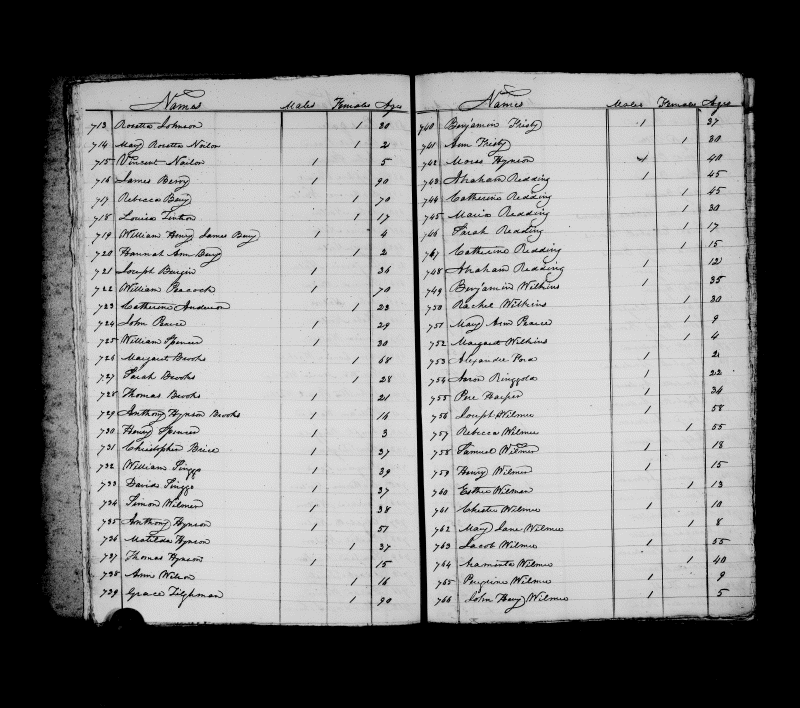 Names Males Females Ages
713 Rosetta Johnson 1 30
714 May Rosetta Nailor 1 2
715 Vincent Nailor 1 5
716 James Berry 1 90
717 Rebecca Bery 1 70
718 Louisa 1 17
719 William Henry James Bery 1 4
720 Hannah Ann Bery 1 2
721 Joseph Burgin 1 36
722 William Peacock 1 70
723 Catherine Anderson 1 23
724 John Pearce 1 29
725 William Spencer 1 30
726 Margaret Brooks 1 68
727 Sarah Brooks 1 28
728 Thomas Brooks 1 21
729 Anthony Hynson Brooks 1 16
730 Henry Spencer 1 3
731 Christopher Brice 1 37
732 William 1 39
733 David 1 37
734 Simon Wilmer 1 38
735 Anthony Hynson 1 51
736 Matilda Hynson 1 37
737 Thomas Hynson 1 15
738 Ann Wilson 1 16
739 Grace Tilghman 1 90
Names Males Females Ages
740 Benjamin Frisby 1 37
741 Ann Frisby 1 30
742 Moses Hynson 1 40
743 Abraham Redding 1 45
744 Catherine Redding 1 45
745 Maria Redding 1 30
746 Sarah Redding 1 17
747 Catherine Redding 1 15
748 Abraham Redding 1 12
749 Benjamin Wilkins 1 35
750 Rachel Wilkins 1 30
751 May Ann Pearce 1 9
752 Margaret Wilkins 1 4
753 Alexander 1 2
754 Aaron Ringgold 1 22
755 Pere Harper 1 34
756 Joseph Wilmer 1 58
757 Rebecca Wilmer 1 55
758 Samuel Wilmer 1 18
759 Henry Wilmer 1 15
760 Esther Wilmer 1 13
761 Chester Wilmer 1 10
762 May Jane Wilmer 1 8
763 Jacob Wilmer 1 55
764 Araminta Wilmer 1 40
765 Perrine Wilmer 1 9
766 John Henry Wilmer 1 5